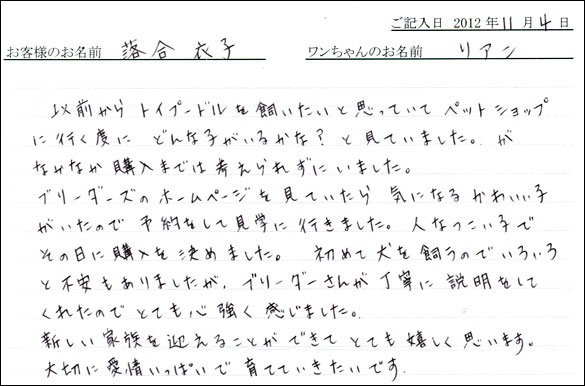 ご記入日 2012 年 11 月 4 日
お客様のお名前 落合 衣子 ワンちゃんのお名前 リアン
以前から トイプードル を 飼いたい と 思っていて ペットショップ
に 行く度に どんな子がいるかな? と 見ていました。が
なかなか 購入までは 考えられずにいました。
ブリーダーズの ホームページを 見ていたら 気になる かわいい子
がいたので 予約をして 見学に 行きました。人なつこい子で
その日に 購入を 決めました。 初めて 犬を 飼うので いろいろ
と 不安もありましたが、ブリーダーさんが 丁寧に 説明をして
くれたので とても 心強く 感じました。
新しい 家族を 迎えることが できて とても 嬉しく 思います。
大切に 愛情いっぱいで 育てていきたいです。